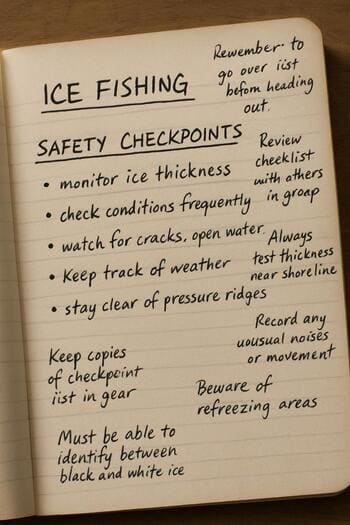 ICE FISHING
Rewember to
go over iist
befom heading
out.
SAFETY CHECKPOINTS
• monitor ice thickness
• check conditions frequently
• watch for cracks, open water.
• Keep track of weather
• stay clear of pressure ridges
Review
cheeklist
with athers
in groap
Always
test thickness
near shoreline
Record any
uousual noises
or movement
Keep copies
of checkpoint
iist in gear
Beware of
refreezing areas
Must be able to
identify between
black and white ice